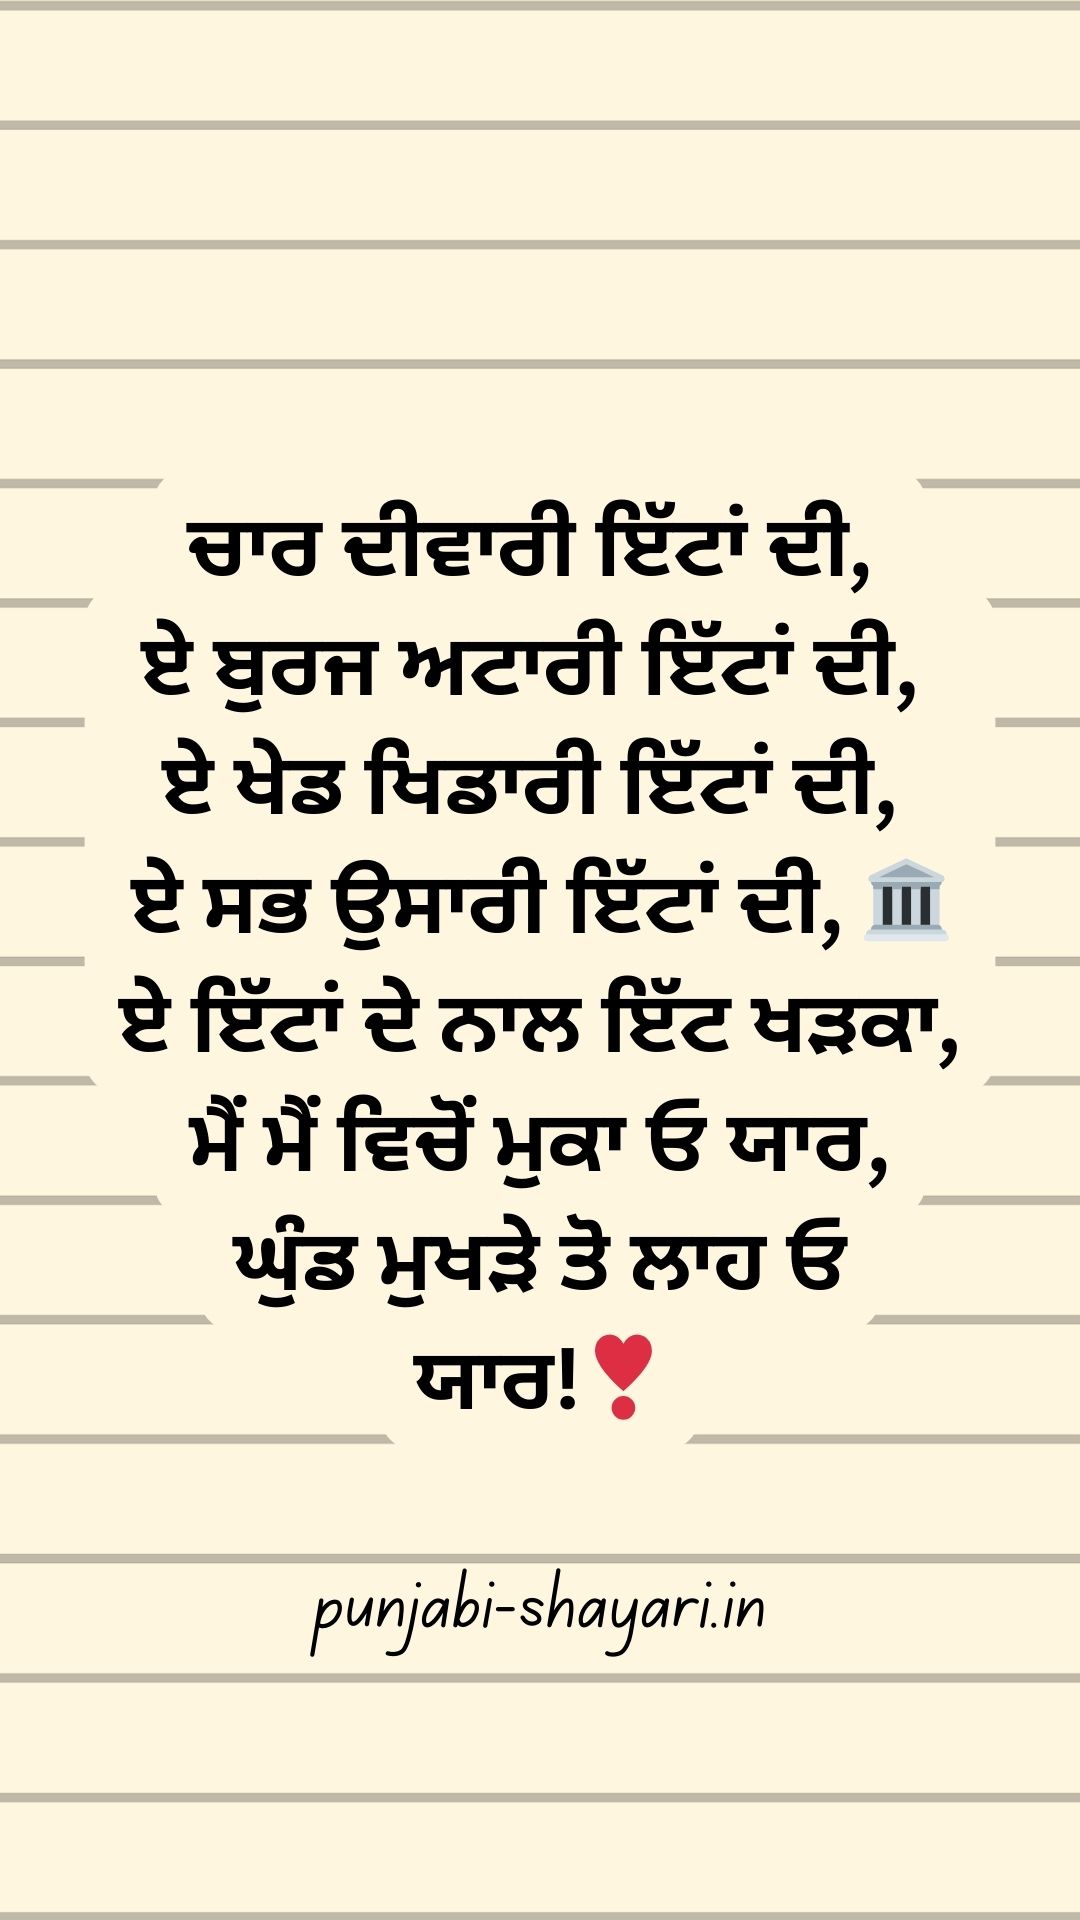 ਚਾਰ ਦੀਵਾਰੀ ਇੱਟਾਂ ਦੀ,
ਏ ਬੁਰਜ ਅਟਾਰੀ ਇੱਟਾਂ ਦੀ,
ਏ ਖੇਡ ਖਿਡਾਰੀ ਇੱਟਾਂ ਦੀ,
ਏ ਸਭ ਉਸਾਰੀ ਇੱਟਾਂ ਦੀ, 🏛️
ਏ ਇੱਟਾਂ ਦੇ ਨਾਲ ਇੱਟ ਖੜਕਾ,
ਮੈਂ ਮੈਂ ਵਿਚੋਂ ਮੁਕਾ ਓ ਯਾਰ,
ਘੁੰਡ ਮੁਖੜੇ ਤੋ ਲਾਹ ਓ
ਯਾਰ!❣️
punjabi-shayari.in